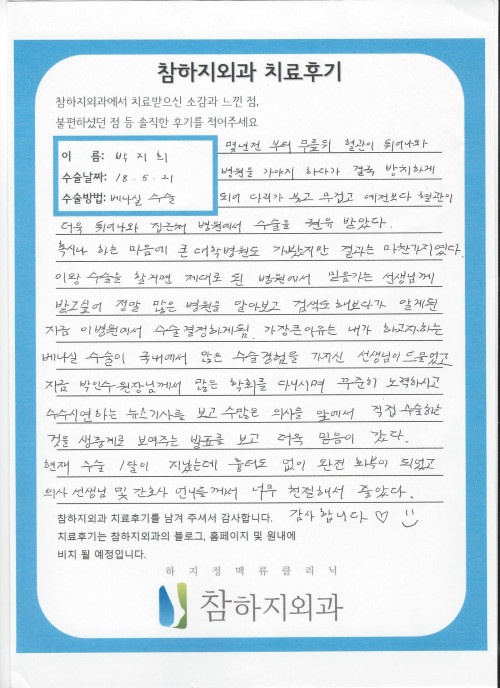 참하지외과 치료후기
참하지외과에서 치료받으신 소감과 느낀 점,
불편하셨던 점 등 솔직한 후기를 적어주세요
이 름: 박지희
수술날짜: 18. 5. 21
수술방법: 베나실 수술
몇년전 부터 무릎뒤 혈관이 튀어나와
병원을 가야지 하다가 결국 방치하게
되어 다리가 붓고 무겁고 예전보다 혈관이
더욱 튀어나와 집근처 병원에서 수술을 권유 받았다.
혹시나 하는 마음에 큰 대학병원도 가봤지만 결과는 마찬가지였다.
이왕 수술을 할거면 제대로 된 병원에서 믿음가는 선생님께
받고싶어 정말 많은 병원을 알아보고 검색도 해보다가 알게된
지금 이병원에서 수술결정하게됨. 가장큰이유는 내가 하고자하는
베나실 수술이 국내에서 많은 수술경험을 가지신 선생님이 드물었고
지금 박인수원장님께서 많은 학회를 다니시며 꾸준히 노력하시고
수술시연하는 뉴스기사를 보고 수많은 의사들 앞에서 직접 수술하는
것을 생중계로 보여주는 발표를 보고 더욱 믿음이 갔다.
현재 수술 1달이 지났는데 흉터도 없이 완전 회복이 되었고
의사선생님 및 간호사 언니들께서 너무 친절해서 좋았다.
감사합니다 ♡ :)
참하지외과 치료후기를 남겨 주셔서 감사합니다.
치료후기는 참하지외과의 블로그, 홈페이지 및 원내에
비치 될 예정입니다.
하지정맥류클리닉
참하지외과